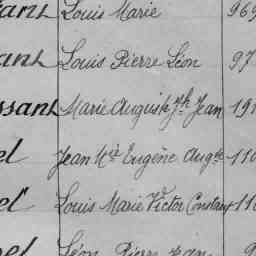 Louis Marie 969
ant Louis Pierre Léon 97
ssant Marie Auguste Jh Jean 191
el Jean Mie Eugène Augte 110
el Louis Marie Victor Constant 110
el Léon Pierre Jean